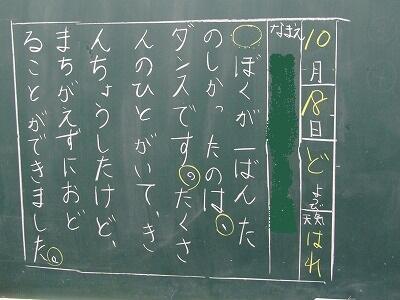 10月18日ど ようび 天気 はれ
なまえ
ぼくが一ばんた
のしかったのは、
ダンスです。たくさ
んのひとがいて、き
んちょうしたけど、
まちがえずにおど
ることができました。